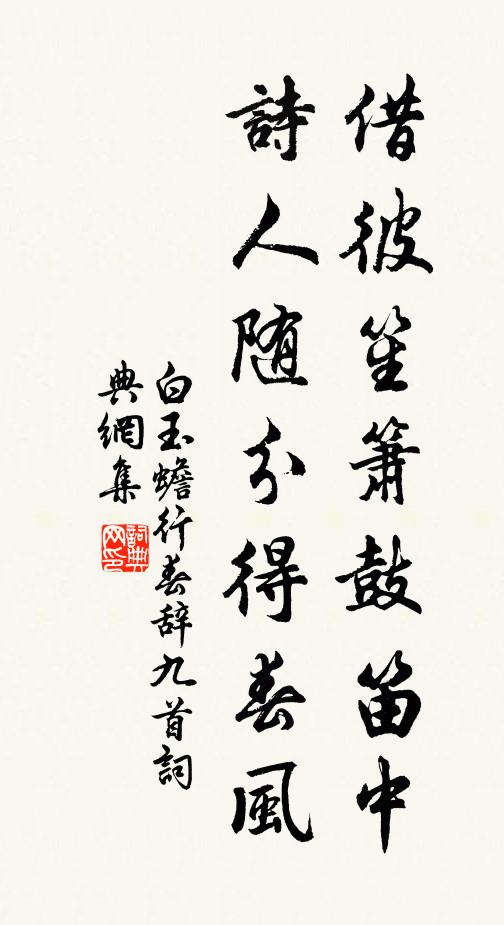 借彼笙簫鼓笛中
詩人随分得春風
白玉蟾行春辞九首詞
典網集
詞典网印